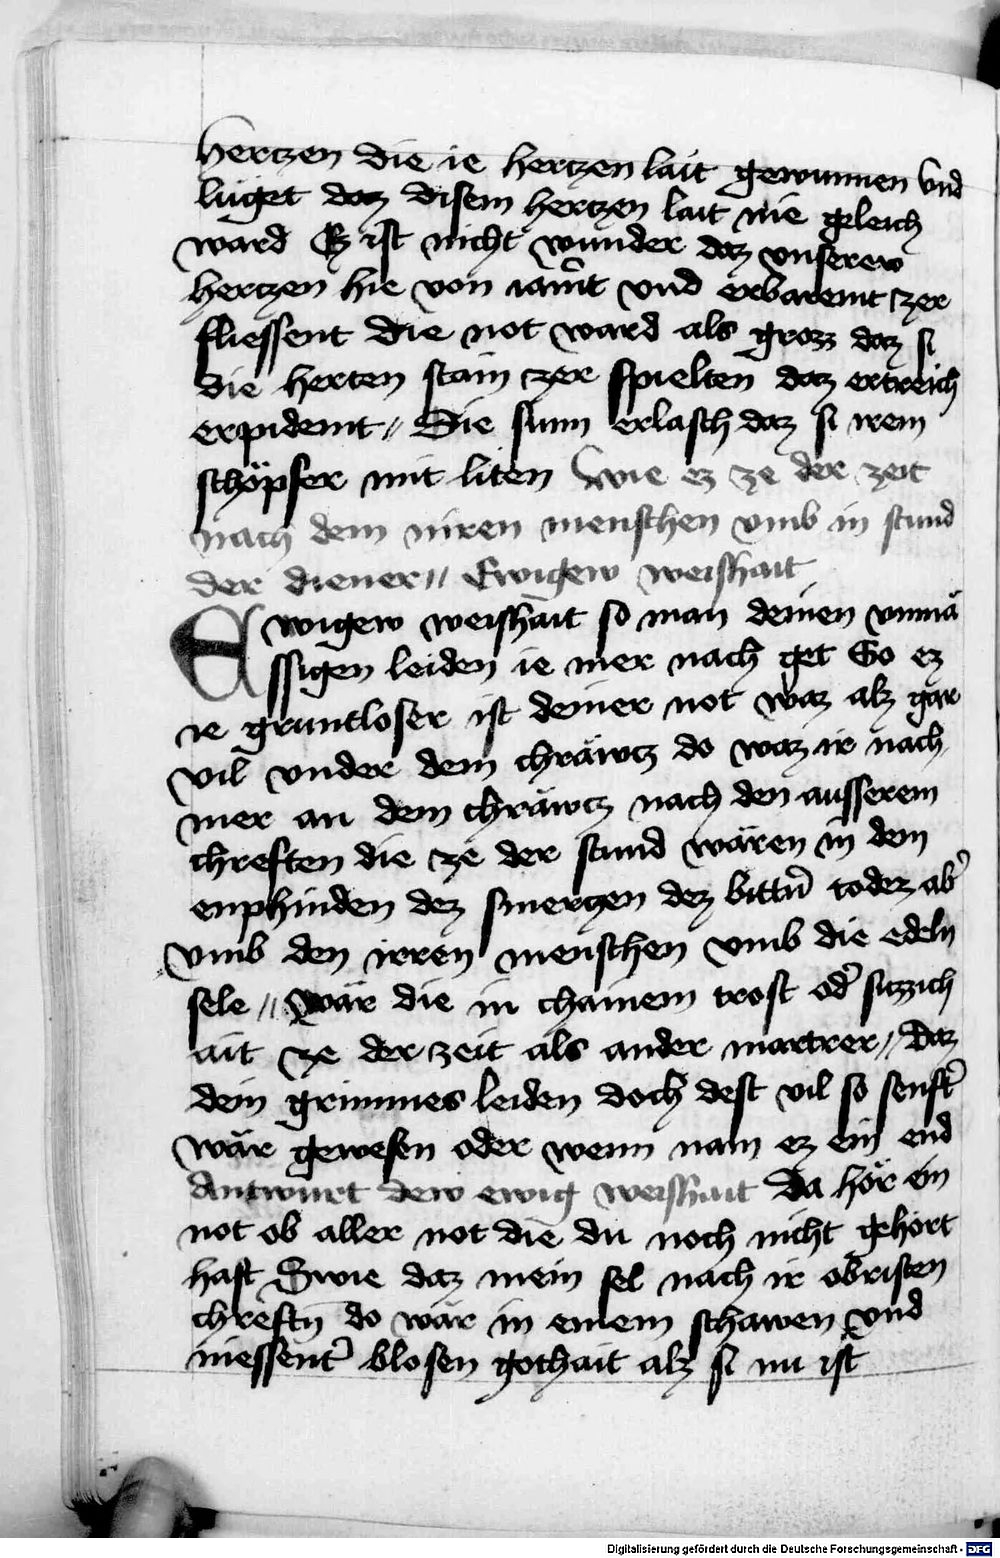 hertzen die ie hertzen lait gewunnen vnd
lůget daz disem hertzen lait nie geleich
ward Ez ist nicht wunder daz vnserew
hertzen hie von iam̄t vnd erbaremt zer
fliessent die not ward als grozz daz si
die herten stain zer spielten daz ertreich
erpidemt // Die sunn erlasch daz si irem
schöpfer mit liten Wie ez ze der zeit
nach dem inren menschen vmb in stund
der diener // Ewigew weishait
Ewigew weishait so man deinen vnmä
ssigen leiden ie mer nach get So ez
ie gruntloser ist deiner not waz alz gar
vil vnder dem chräwcz do waz ir nach
mer an dem chräwcz nach den ausserem
chreften die ze der stund wären in dem
enphinden dez smerczen dez bittn̄ todez ab̄
vmb den irren menschen vmb die edeln
sele // Wär die in chainem trost od̄ sizzich
ait ze der zeit als ander martrer // Daz
dein grimmes leiden doch dest vil so senft̄
wär gewesen oder wenn nam ez ein end
Antwurt dew ewig weishait Da hör ein
not ob aller not die du noch nicht gehört
hast Swie daz mein sel nach ir obristen
chreftn̄ do wär in einem schawen vnd
niessent̄ blosen gothait alz si nu ist
Digitalisierung gefördert durch die Deutsche Forschungsgemeinschaft - DFG